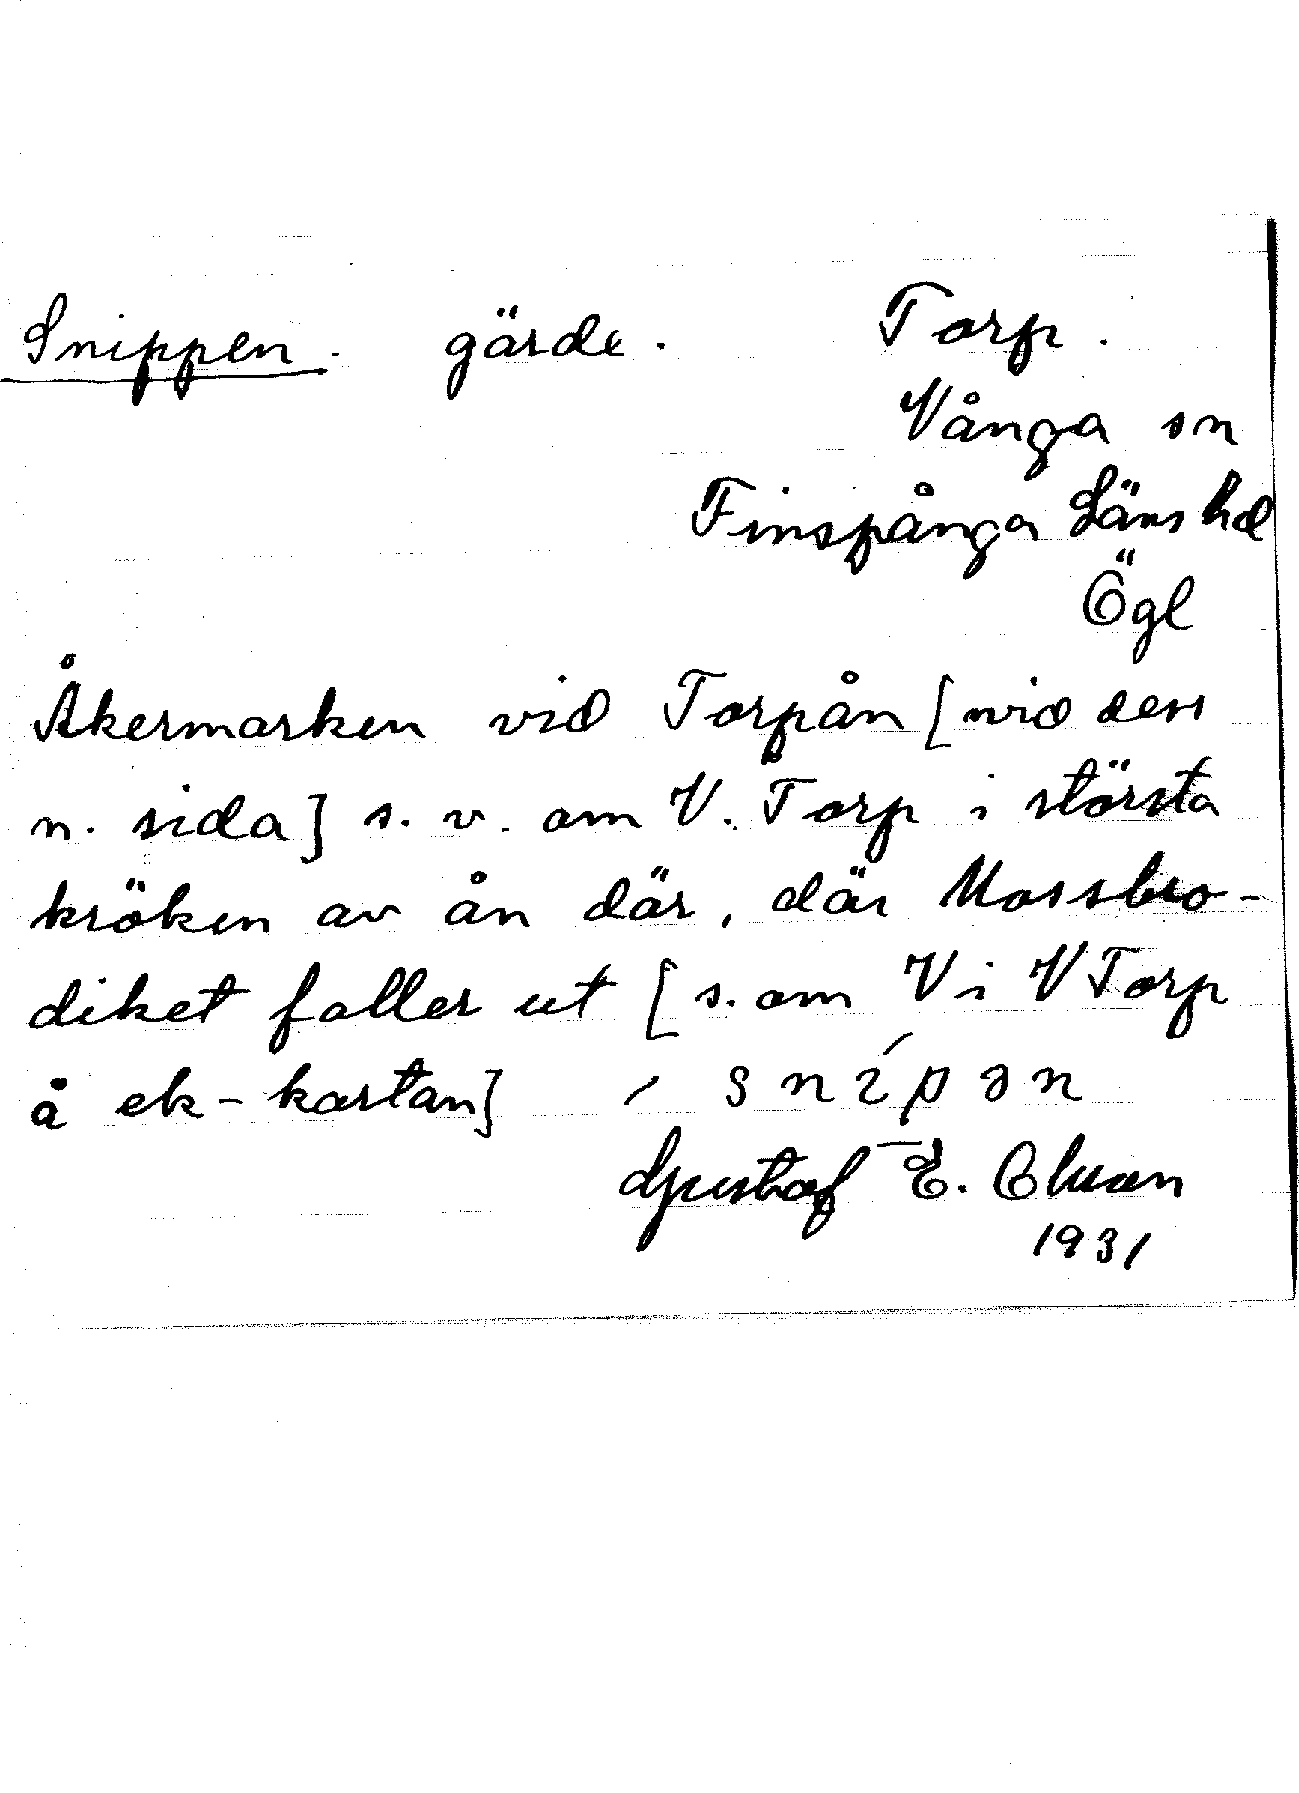 Snippen. gärde. Torp.
Vånga sn
Finspånga Läns hd
Ögl
Åkermarken vid Torpån [vid dess
n. sida] s. v. om V. Torp i största
kröken av ån där, där Mossbro-
diket faller ut [s. om V i V Torp
å ek-kartan] snípən
Gustaf E.
1931